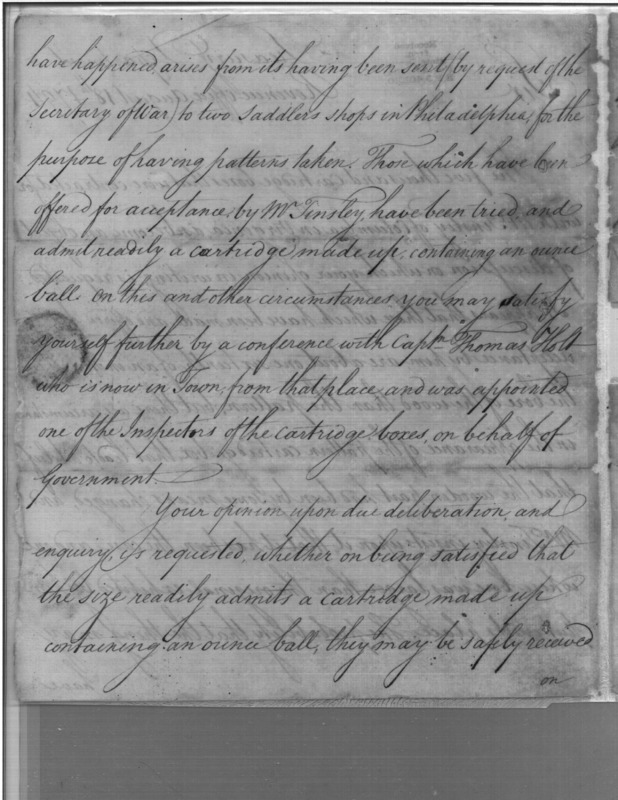 have happened, arises from its having been sent (by request of the
Secretary of War) to two saddlers shops in Philadelphia, for the
purpose of having patterns taken. Those which have been
offered for acceptance, by Mr. Tinsley have been tried, and
admit readily a cartridge made up, containing an ounce
ball. On this and other circumstances you may satisfy
yourself further by a conference with Captn. Thomas Holt
who is now in Town, from that place, and was appointed
one of the Inspectors of the cartridge boxes, on behalf of
Government.
Your opinion upon due deliberation, and
enquiry is requested, whether on being satisfied that
the size readily admits a cartridge made up
containing an ounce ball, they may be safely received
on